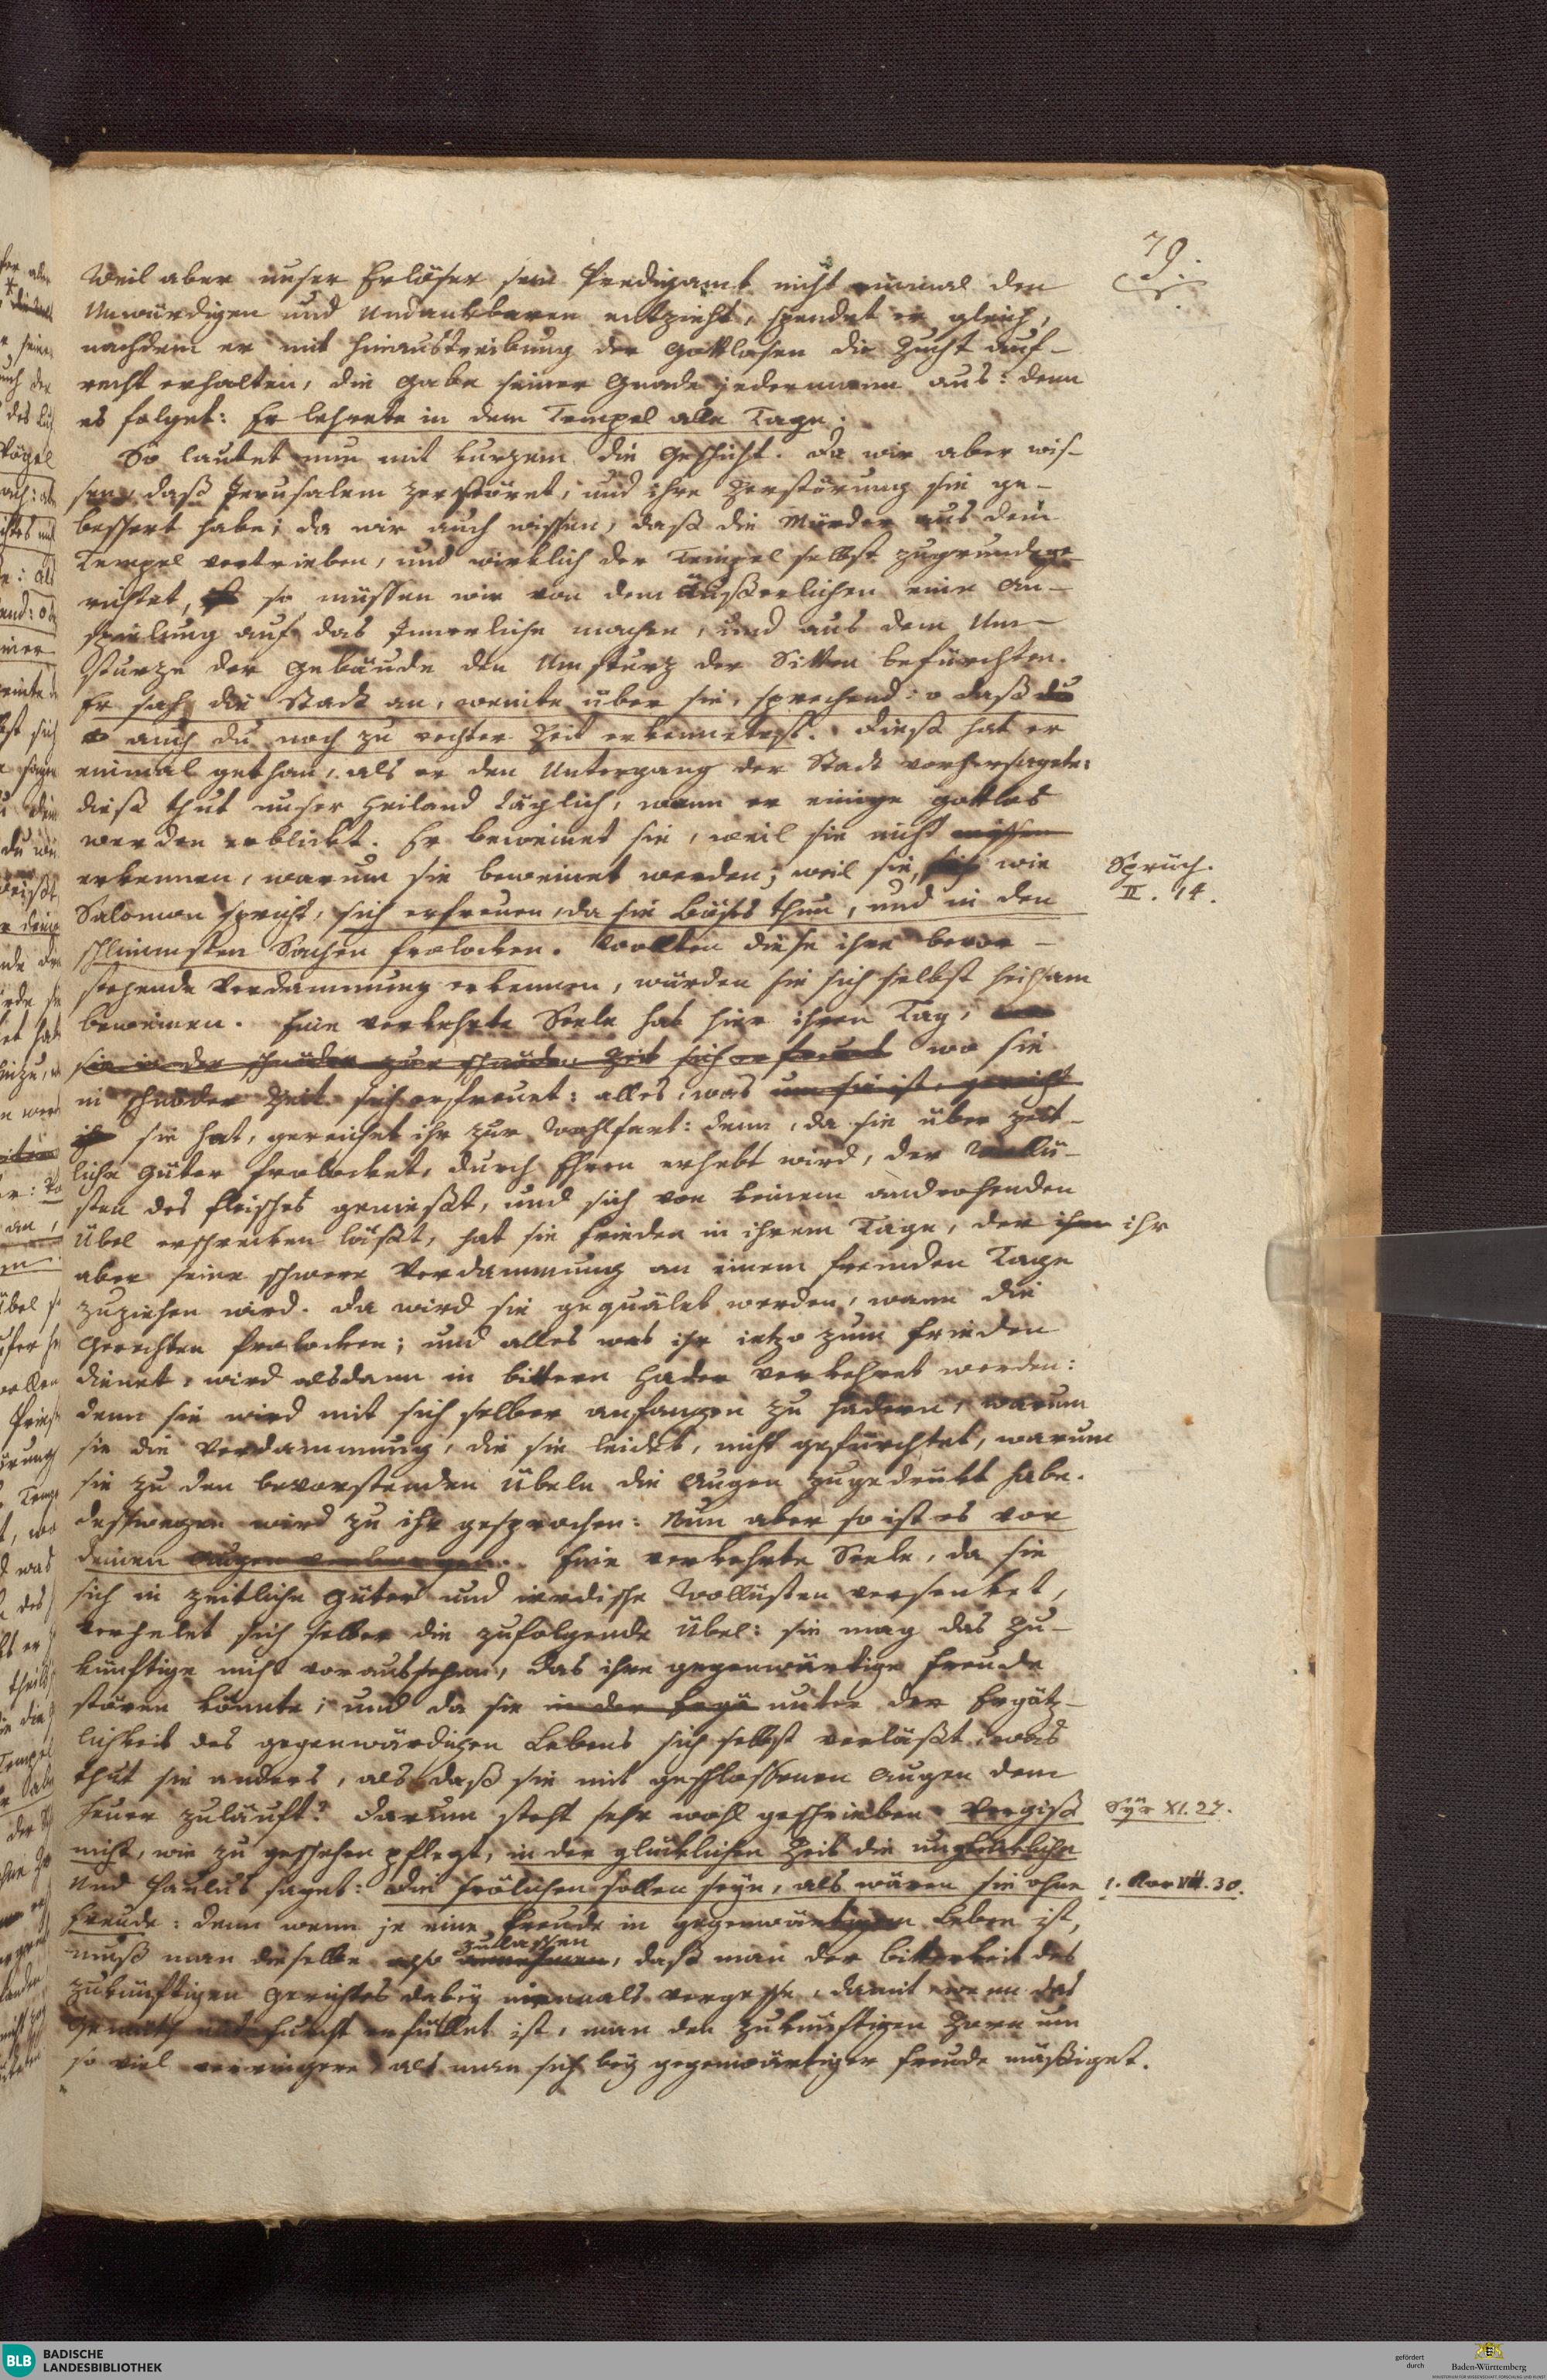 79.
Weil aber unser Erlöser sein Predigamt nicht einmal den
Unwürdigen und Undankbaren entzieht, spendet er gleich,
nachdem er mit Hinaustreibung der Gottlosen die Zucht auf-
recht erhalten, die Gabe seiner Gnade jedermann aus: denn
es folget: Er lehrete in dem Tempel alle Tage.
So lautet nun mit kurzem die Geschicht. Da wir aber wis-
sen, daß Jerusalem zerstöret, und ihre Zerstörung sie ge-
bessert habe; da wir auch wissen, daß die Mörder aus dem
Tempel vertrieben, und wirklich der Tempel selbst zugrundege-
richtet, so müssen wir von dem Äußerlichen eine An-
spielung auf das Innerliche machen, und aus dem Um-
sturze der Gebäude den Umsturz der Sitten befürchten.
Er sah die Stadt an, weinte über sie, sprechend: o daß du
auch du noch zu rechter Zeit erkennetest. Dieß hat er
einmal gethan, als er den Untergang der Stadt vorhersagete:
dieß thut unser Heiland täglich, wann er einige gottlos
werden erblickt. Er beweinet sie, weil sie nicht wissen
erkennen, warum sie beweinet werden; weil sie, sich wie
Salomon spricht, sich erfreuen, da sie Böses thun, und in den
Sprüch.
II. 14.
schlimmsten Sachen frolocken. Wollten diese ihre bevor-
stehende Verdammung erkennen, würden sie sich selbst heilsam
beweinen. Eine verkehrte Seele hat hier ihren Tag,
sie in der schnöden zur schnöden Zeit sich erfreuet wo sie
in schnöder Zeit sich erfreuet: alles, was um sie ist, gereicht
ih sie hat, gereichet ihr zur Wohlfart: denn, da sie über zeit-
liche Güter frolocket, durch Ehren erhebt wird, der Wollü-
sten des Fleisches genießt, und sich von keinem androhenden
Übel erschrecken läßt, hat sie Frieden in ihrem Tage, der ihm ihr
aber seine schwere Verdammung an einem fremden Tage
zuziehen wird. Da wird sie gequälet werden, wann die
Gerechten frolocken; und alles was ihr ietzo zum Frieden
dienet, wird alsdann in bittern Hader verkehret werden:
denn sie wird mit sich selber anfangen zu hadern, warum
sie die Verdammung, die sie leidet, nicht gefürchtet, warum
sie zu den bevorstenden Übeln die Augen zugedrükt habe.
desswegen wird zu ihr gesprochen: Nun aber so ist es vor
deinen Augen verborgen. Eine verkehrte Seele, da sie
sich in zeitliche Güter und irrdische Wollüsten versenket,
verhelet sich selber die zufolgende Übel: sie mag das Zu-
künftige nicht voraussehen, das ihre gegenwärtige Freude
stören könnte; und da sie in der Ergö unter der Ergötz-
lichkeit des gegenwärdigen Lebens sich selbst verläßt, was
thut sie anders, als daß sie mit geschlossenen Augen dem
Feuer zuläuft? Darum steht sehr wohl geschrieben: Vergiß
Syr XI. 27.
nicht, wie zu geschehen pflegt, in der glücklichen Zeit die unglückliche
Und Paulus saget: Die frölichen sollen seyn, als wären sie ohne
1. Kor VII. 30.
Freude: denn wenn je eine Freude in gegenwärtigem Leben ist,
zulassen
muß man dieselbe also annehmen, daß man der Bitterkeit des
zukünftigen Gerichtes dabey niemals vergesse, damit, wenn das
Gemüth mit Furcht erfüllet ist, man den zukünftigen Zorn um
so viel verringere, als man sich bey gegenwärtiger Freude mäßiget.
BLB BADISCHE
LANDESBIBLIOTHEK
gefördert
durch
Baden-Württemberg